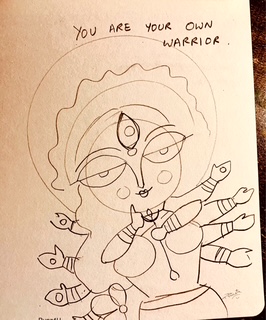 YOU ARE YOUR OWN
WARRIOR.